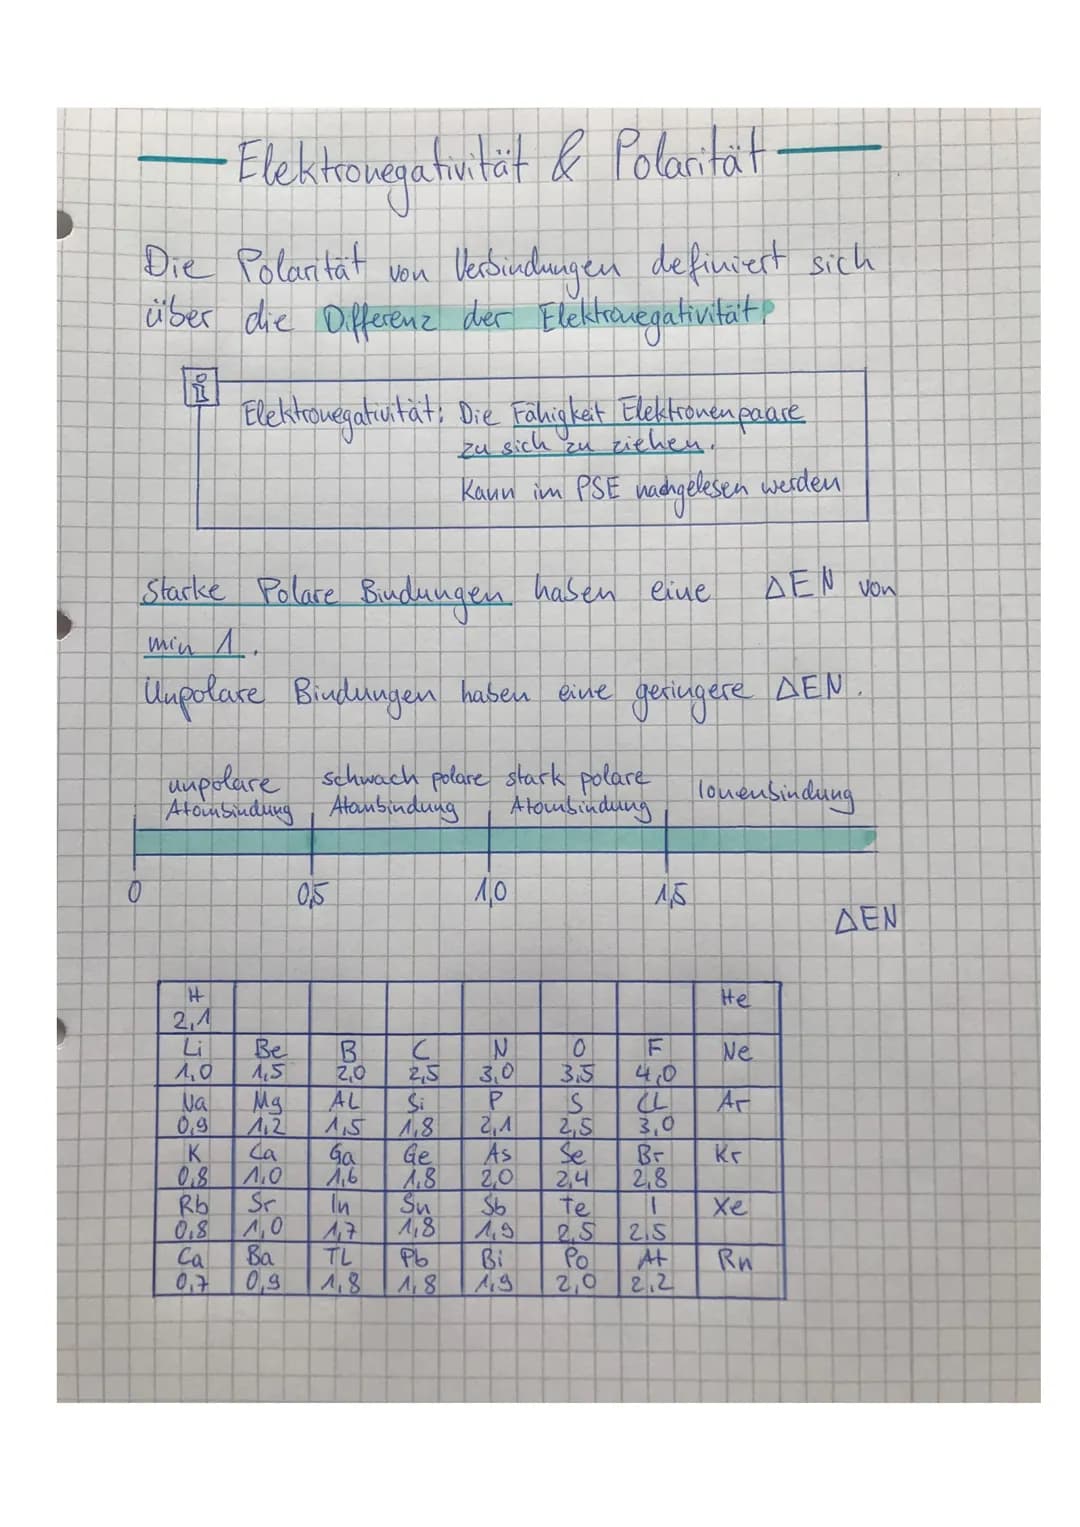 Elektronegativität & Polarität
Die Polarität von Verbindungen definiert sich
über die Differenz der Elektronegativität.
i
Elektronegativität: Die Fähigkeit Elektronenpaare
zu sich zu ziehen.
Kann im PSE nachgelesen werden
Starke Polare Bindungen haben eine ΔEN von
min 1.
Unpolare Bindungen haben eine geringere ΔEN.
unpolare schwach polare stark polare Ionenbindung
Atombindung Atombindung Atombindung
0 0,5 1,0 1,5
ΔEN
H He
2,1
Li Be B C N O F Ne
1,0 1,5 2,0 2,5 3,0 3,5 4,0
Na Mg AL Si P S CL Ar
0,9 1,2 1,5 1,8 2,1 2,5 3,0
K Ca Ga Ge As Se Br Kr
0,8 1,0 1,6 1,8 2,0 2,4 2,8
Rb Sr In Sn Sb Te I Xe
0,8 1,0 1,7 1,8 1,9 2,5 2,5
Ca Ba TL Pb Bi Po At Rn
0,7 0,9 1,8 1,8 1,9 2,0 2,2